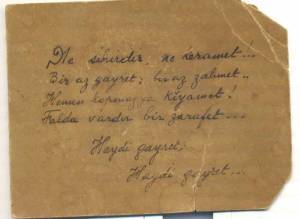 Ne sihirdir, ne keramet...
Bir az gayret; bi az zahmet..
Hemen kopmaz ya kıyamet!
Falda vardır bir zarafet...
Haydi gayret,
Haydi gayret...